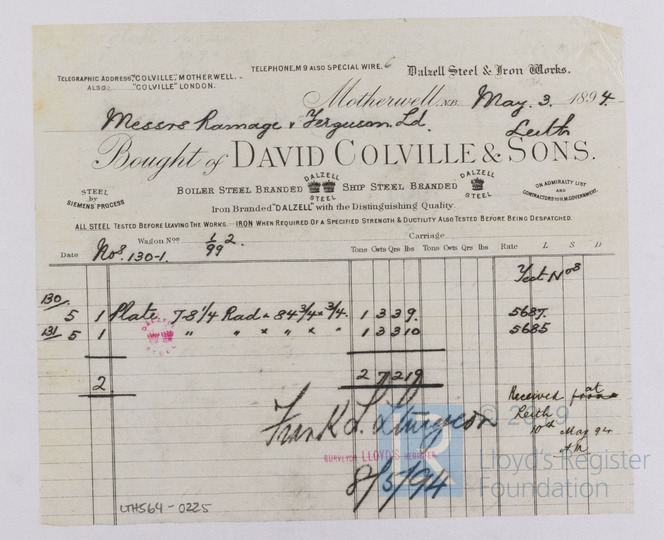 TELEPHONE, Mº9 ALSO SPECIAL WIRE.
Dalzell Steel & Iron Works.
TELEGRAPHIC ADDRESS, "COLVILLE", MOTHERWELL.
ALSO: "COLVILLE" LONDON.
Motherwell, N.B. May. 3. 1894.
Messrs Ramage & Ferguson. Ld. Leith
Bought of DAVID COLVILLE & SONS.
STEEL by SIEMENS' PROCESS
BOILER STEEL BRANDED DALZELL STEEL SHIP STEEL BRANDED DALZELL STEEL
ON ADMIRALTY LIST AND CONTRACTORS TO H.M. GOVERNMENT.
Iron Branded "DALZELL" with the Distinguishing Quality.
ALL STEEL TESTED BEFORE LEAVING THE WORKS. IRON WHEN REQUIRED OF A SPECIFIED STRENGTH & DUCTILITY ALSO TESTED BEFORE BEING DESPATCHED.
Wagon Nos 1/99 2. Carriage
Date Nos. 130-1. Tons Cwts Qrs lbs Tons Cwts Qrs lbs Rate L S D
Test Nos
130/5 1 Plate 7-8 1/4 Rad x 84 3/4 x 3/4. 1 3 3 9. 5687.
131/5 1 " " " " " " 1 3 3 10 5685
DALZELL STEEL
2 2 7 2 19
Received at from
Leith
10th May 94
Frank L. Sturgeon
SURVEYOR LLOYD'S REGISTER
8/5/94
LTHS64-0225
© 2019
Lloyd's Register
Foundation